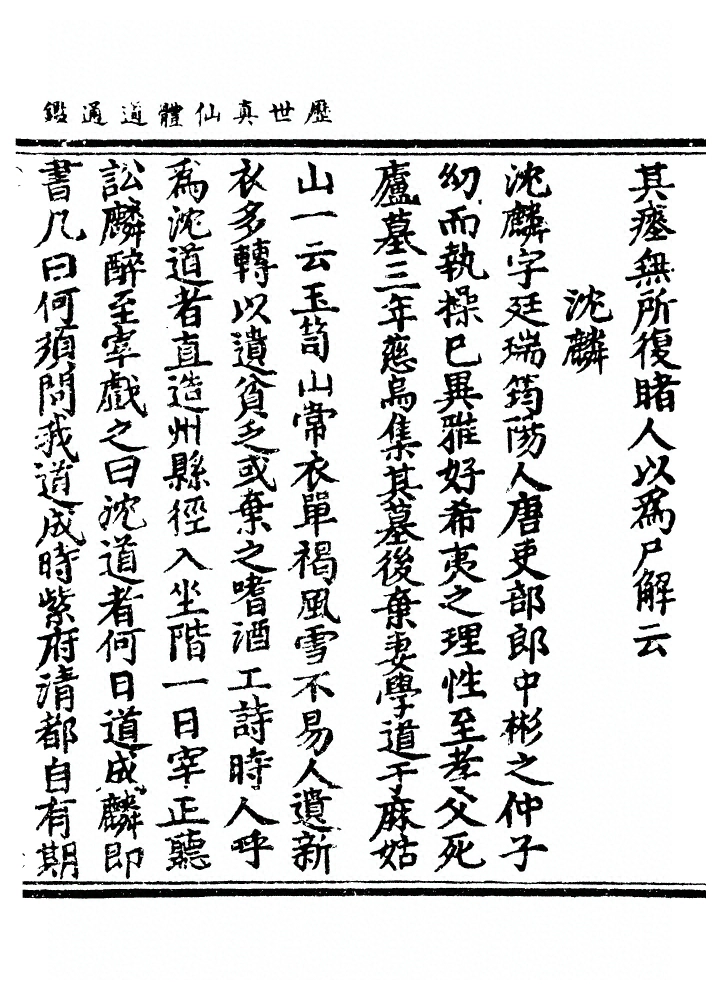 歷世真仙體道通鑑
其瘞無所復睹人以為尸解云
沈麟
沈麟字廷瑞筠陽人唐吏部郎中彬之仲子
幼而執操已異雅好希夷之理性至孝父死
廬墓三年慈烏集其墓後棄妻學道于麻姑
山一云玉笥山常衣單褐風雪不易人遺新
衣多轉以遺貧乏或棄之嗜酒工詩時人呼
為沈道者直造州縣徑入坐階一日宰正聽
訟麟醉至宰戲之曰沈道者何日道成麟即
書几曰何須問我道成時紫府清都自有期